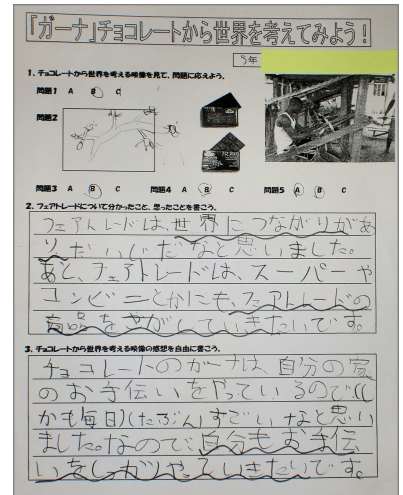 「ガーナ」チョコレートから世界を考えてみよう！
5年
1、チョコレートから世界を考える映像を見て、問題に応えよう。
問題1 A B C
問題2
問題3 A B C 問題4 A B C 問題5 A B C
2、フェアトレードについて分かったこと、思ったことを書こう。
フェアトレードは、世界につながりがあ
りだいじだなと思いました。
あと、フェアトレードは、スーパーや
コンビニとかにも、フェアトレードの
商品をさがしていきたいです。
3、チョコレートから世界を考える映像の感想を自由に書こう。
チョコレートのガーナは、自分の家
のお手伝いをやっているので(し
かも毎日)(たぶん)すごいなと思い
ました。なので、自分もお手伝
いをしっかりやっていきたいです。